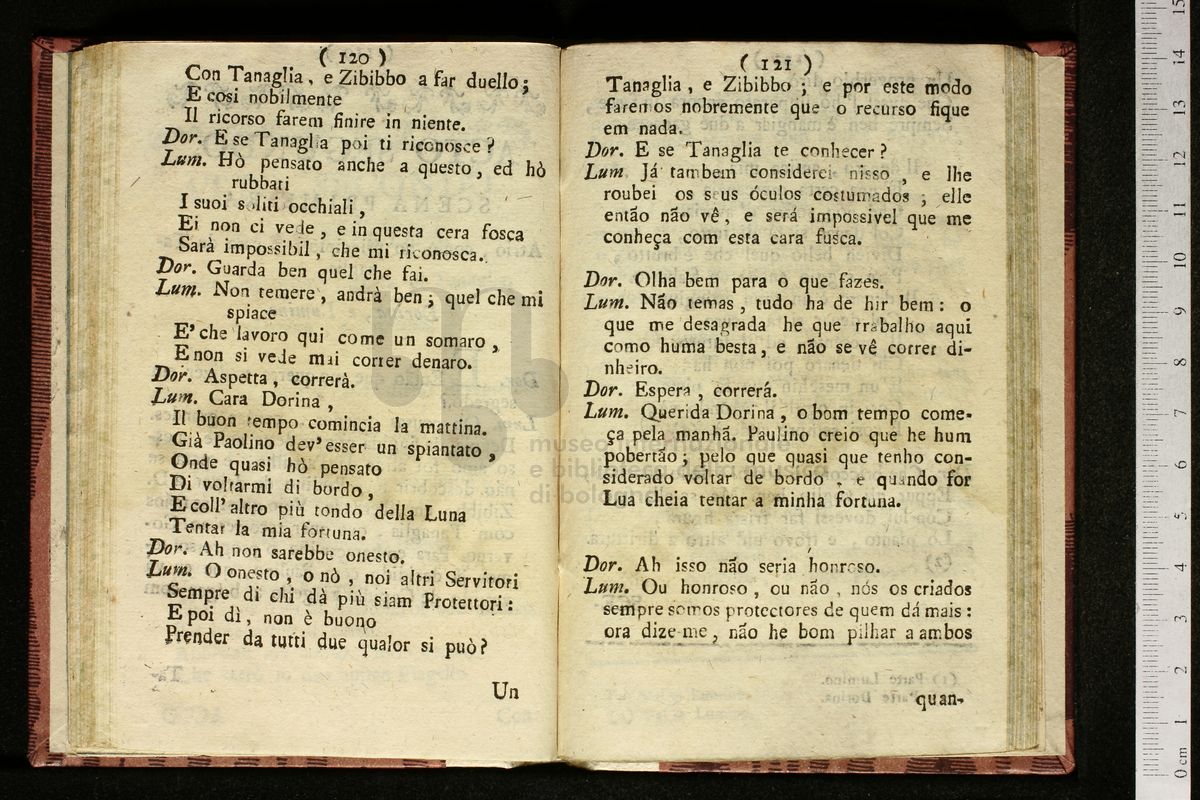 ( 120 )
Con Tanaglia, e Zibibbo a far duello;
E cosi nobilmente
Il ricorso farem finire in niente.
Dor. E se Tanaglia poi ti riconosce?
Lum. Hò pensato anche a questo, ed hò
rubbati
I suoi soliti occhiali,
Ei non ci vede, e in questa cera fosca
Sarà impossibil, che mi riconosca.
Dor. Guarda ben quel che fai.
Lum. Non temere, andrà ben; quel che mi
spiace
E' che lavoro qui come un somaro,
E non si vede mai correr denaro.
Dor. Aspetta, correrà.
Lum. Cara Dorina,
Il buon tempo comincia la mattina.
Già Paolino dev' esser un spiantato,
Onde quasi hò pensato
Di voltarmi di bordo,
E coll' altro più tondo della Luna
Tentar la mia fortuna.
Dor. Ah non sarebbe onesto.
Lum. O onesto, o nò, noi altri Servitori
Sempre di chi dà più siam Protettori:
E poi dì, non è buono
Prender da tutti due qualor si può?
Un
( 121 )
Tanaglia, e Zibibbo; e por este modo
faremos nobremente que o recurso fique
em nada.
Dor. E se Tanaglia te conhecer?
Lum. Já tambem considerei nisso, e lhe
roubei os seus óculos costumados; elle
então não vê, e será impossivel que me
conheça com esta cara fusca.
Dor. Olha bem para o que fazes.
Lum. Não temas, tudo ha de hir bem: o
que me desagrada he que trabalho aqui
como huma besta, e não se vê correr di-
nheiro.
Dor. Espera, correrá.
Lum. Querida Dorina, o bom tempo come-
ça pela manhã. Paulino creio que he hum
pobertão; pelo que quasi que tenho con-
siderado voltar de bordo, e quando for
Lua cheia tentar a minha fortuna.
Dor. Ah isso não seria honroso.
Lum. Ou honroso, ou não, nós os criados
sempre somos protectores de quem dá mais:
ora dize-me, não he bom pilhar a ambos
quan-
museo internazionale
e biblioteca della musica
di bologna
0 cm 1 2 3 4 5 6 7 8 9 10 11 12 13 14 15